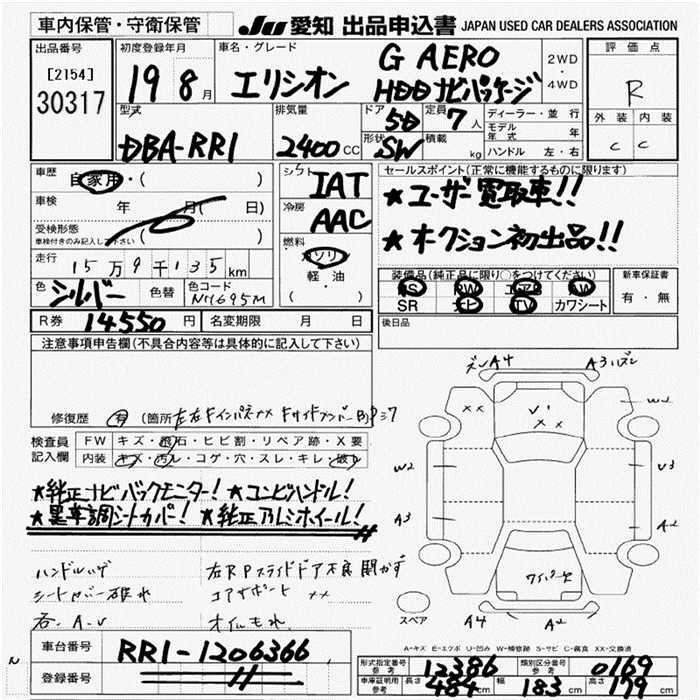 車内保管・守衛保管
JU 愛知 出品申込書 JAPAN USED CAR DEALERS ASSOCIATION
出品番号
[2154]
30317
初度登録年月
19 8月
車名・グレード
エリシオン
G AERO
HDDナビパッケージ
2WD
・
4WD
評価点
R
外装 内装
C C
型式
DBA-RR1
排気量
2400CC
ドア
5D
定員
7人
形状
SW
積載
kg
ディーラー・並行
モデル年式 年
ハンドル 左・右
車歴
自家用・( )
車検
年 月( 日)
受検形態
車検付きのみ記入して下さい ( )
走行
15万9千135km
色
シルバー
色替
色コード
NH695M
R券 14550円
名変期限 月 日
シフト
IAT
冷房
AAC
燃料
ガソリン
軽・油
( )
セールスポイント(正常に機能するものに限ります)
★ユーザー買取車!!
★オークション初出品!!
装備品(純正品に限り○をつけてください)
PS PW エアB AW
SR ナビ TV カワシート
新車保証書
有・無
後日品
注意事項申告欄(不具合内容等は具体的に記入して下さい)
修復歴 有 (箇所
検査員
記入欄
FW キズ・飛石・ヒビ割・リペア跡・X要
内装 キズ・汚レ・コゲ・穴・スレ・キレ・破レ
★純正ナビバックモニター! ★コンビハンドル!
★黒革調シートカバー! ★純正アルミホイール!
ハンドルハゲ 左RPスライドドア不良 開かず
シートカバー破れ コアサポート xx
各A-U オイルもれ
車台番号 RR1-1206366
登録番号
A4 A3
W2
xx U' xx
W2 U3
A3 A2
ワイパーケ
スペア
A4 A2
A-キズ E-エクボ U-凹み W-補修跡 S-サビ C-腐食 XX-交換済
形式指定番号 参考 12386
類別区分番号 参考 0169
車庫証明用 参考 長さ 484cm 幅 183cm 高さ 179cm